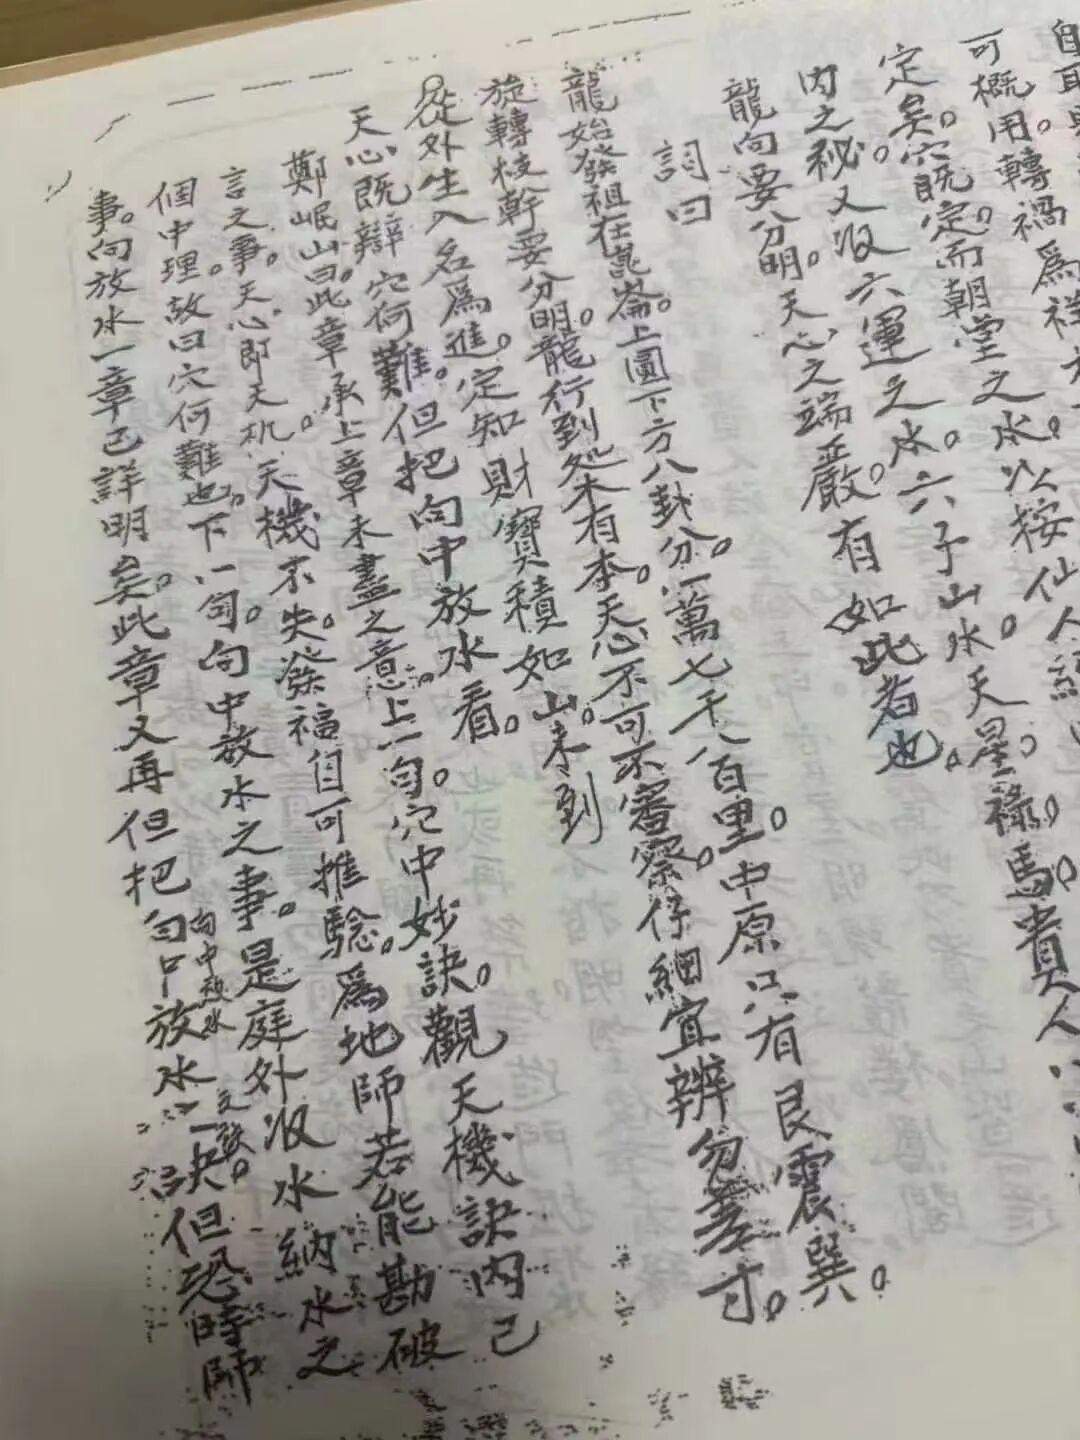 自取
可概用。轉禍爲祥
定矣。穴既定。而朝堂之水。以按仙人
内之秘。又收六運之水。六子山水。天星。祿馬。貴人
龍向要分明。天心之端嚴。有如此者也。
詞曰
龍始發祖在崑崙。上圓下方八卦分。一萬七千八百里。中原只有艮震巽。
旋轉枝幹要分明。龍行到処木有本。天心不可不審察。仔細宜辨勿差寸。
從外生入名爲進。定知財寶積如山。未到
天心既辯穴何難。但把向中放水看。
鄭岷山曰。此章承上章未盡之意。上一句。穴中妙訣。觀天機訣内已
言之事。天心即天机。天機不失。發福自可推驗。爲地師若能勘破
個中理。故曰穴何難也。下一句。向中放水之事。是庭外收水納水之
事。向放水一章已詳明矣。此章又再但把向中放水一訣。但恐時師
向中放水